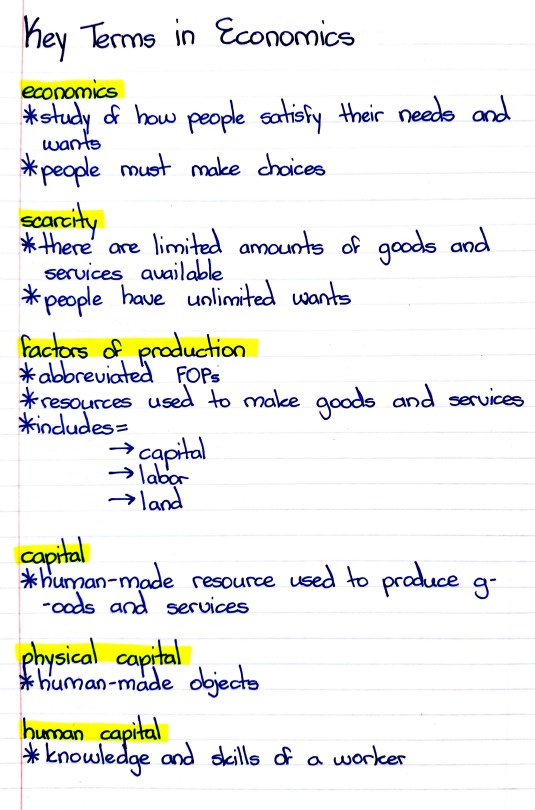 Key Terms in Economics
economics
*study of how people satisfy their needs and
wants
*people must make choices
scarcity
*there are limited amounts of goods and
services available
*people have unlimited wants
factors of production
*abbreviated FOPs
*resources used to make goods and services
*includes=
→ capital
→ labor
→ land
capital
*human-made resource used to produce g-
-oods and services
physical capital
*human-made objects
human capital
*knowledge and skills of a worker